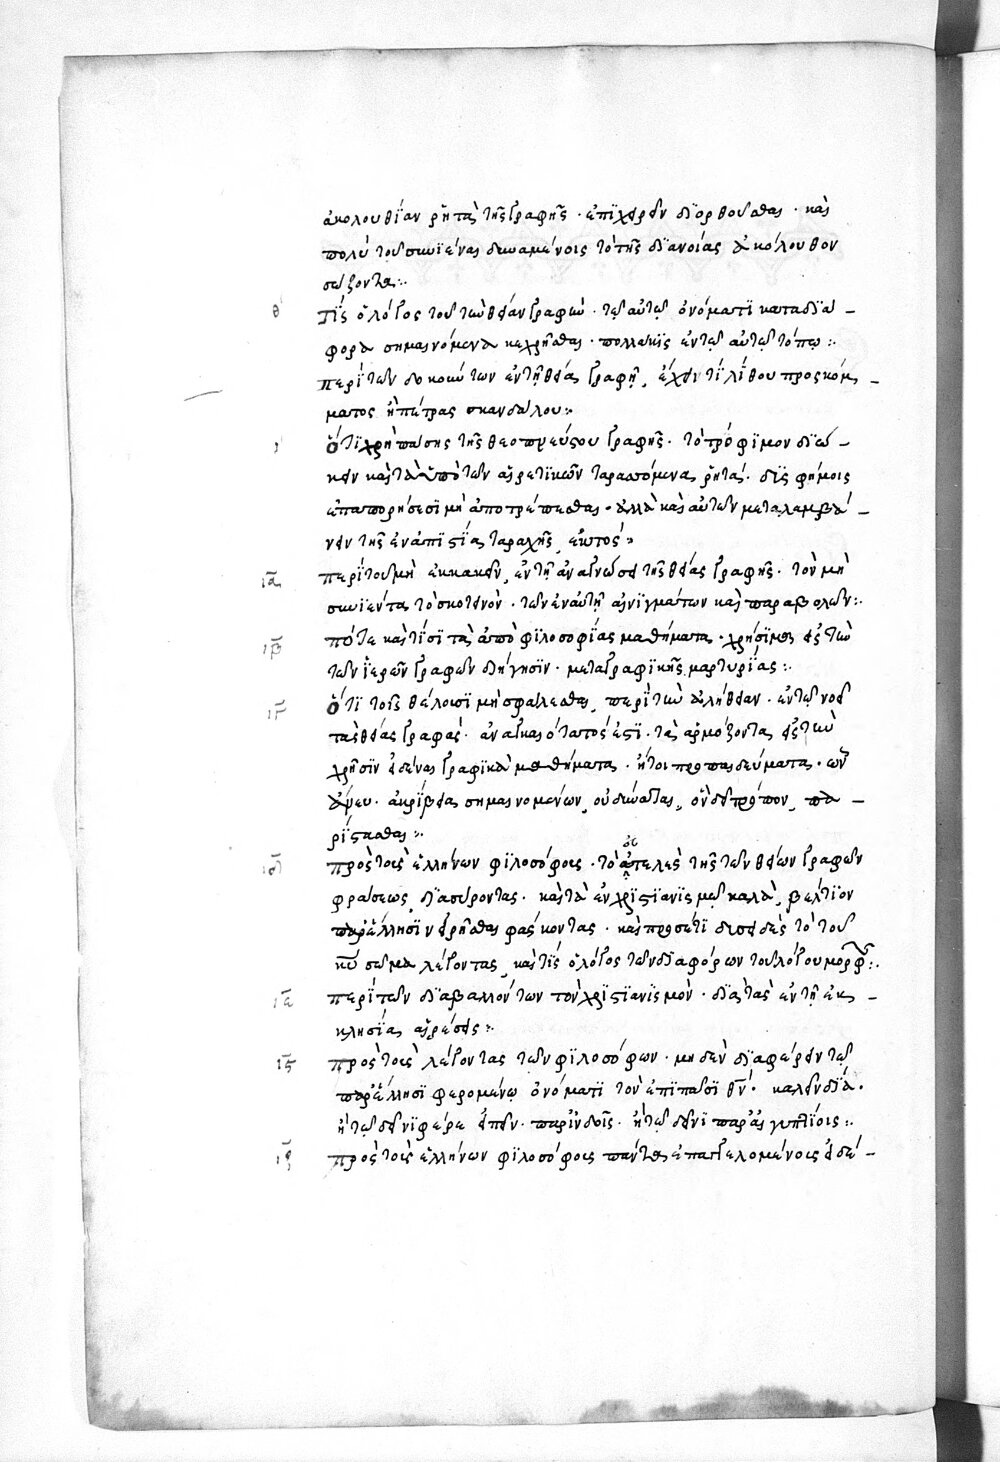 ἀκολουθίαν ῥητὰ τῆς γραφῆς· ἐπιχειρεῖν διορθοῦσθαι· καὶ
πολὺ τοῦ συνιέναι δυναμένοις τὸ τῆς διανοίας ἀκόλουθον
σώζοντα:
θ τίς ὁ λόγος τοῦ τὴν θείαν γραφὴν· τῷ αὐτῷ ὀνόματι κατὰ δια-
φορα σημαινόμενα κεχρῆσθαι· πολλάκις ἐν τῷ αὐτῷ τόπῳ:
περὶ τῶν δοκούντων ἐν τῇ θείᾳ γραφῇ, ἔχειν τι λίθου προσκόμ-
ματος ἢ πέτρας σκανδάλου:
ι ὅτι χρὴ πάσης τῆς θεοπνεύστου γραφῆς· τὸ τρόφιμον διώ-
κειν καὶ τὰ ὑπὸ τῶν αἱρετικῶν ταρασσόμενα ῥητά· δὶς φήμοις
ἐπαπορήσεσι μὴ ἀποτρέπεσθαι· ἀλλὰ καὶ αὐτῶν μεταλαμβά-
νειν τῆς ἐν ἀπιστίᾳ ταραχῆς ἐκτός:
ια περὶ τοῦ μὴ ἐκκακεῖν, ἐν τῇ ἀναγνώσει τῆς θείας γραφῆς· τὸν μὴ
συνιέντα τὸ σκοτεινὸν· τῶν ἐν αὐτῇ αἰνιγμάτων καὶ παραβολῶν:
ιβ πότε καὶ τίσι τὰ ἀπὸ φιλοσοφίας μαθήματα· χρήσιμα εἰς τὴν
τῶν ἱερῶν γραφῶν διήγησιν· μετὰ γραφικῆς μαρτυρίας:
ιγ ὅτι τοῖς θέλουσι μὴ σφάλλεσθαι, περὶ τὴν ἀλήθειαν· ἐν τῷ νοεῖν
τὰς θείας γραφάς· ἀναγκαιότατός ἐστι· τὰ ἁρμόζοντα εἰς τὴν
χρῆσιν εἰδέναι γραφικὰ μαθήματα· ἤτοι προπαιδεύματα· ὧν
ἄνευ· ἀκριβείας σημαινομένων, οὐ δύναται, ὃν δεῖ τρόπον, πα-
ρίστασθαι:
ιδ πρὸς τοὺς ἑλλήνων φιλοσόφους· τὸ ἀτελὲς τῆς τῶν θείων γραφῶν
φράσεως, διασύροντας· καὶ τὰ ἐν χριστιανισμῷ καλὰ, βέλτιον
παρ' ἕλλησιν εἰρῆσθαι φάσκοντας· καὶ προσέτι δυσειδὲς τὸ τοῦ
κυ σῶμα λέγοντας, καὶ τίς ὁ λόγος τῶν διαφόρων τοῦ λόγου μορφῶν:
ιε περὶ τῶν διαβαλλόντων τὸν χριστιανισμὸν· διὰ τὰς ἐν τῇ ἐκ-
κλησίᾳ αἱρέσεις:
ις πρὸς τοὺς λέγοντας τῶν φιλοσόφων· μηδὲν διαφέρειν τῷ
παρ' ἕλλησι φερομένῳ ὀνόματι τὸν ἐπὶ πᾶσι θν· καλεῖν δία·
ἢ τῷ δεῖνι φέρε εἰπεῖν· παρ' ἰνδοῖς· ἢ τῷ δεῖνι παρ' αἰγυπτίοις:
ιζ πρὸς τοὺς ἑλλήνων φιλοσόφους πάντα ἐπαγγελομένους εἰδέ-